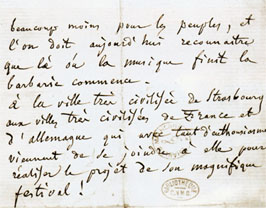 beaucoup moins pour les peuples, et
l'on doit aujourd'hui reconnaitre
que là où la musique finit la
barbarie commence.
à la ville très civilisée de Strasbourg
aux villes très civilisées de France et
d'allemagne qui avec tant d'enthousiasme
viennent de se joindre à elle pour
réaliser le projet de son magnifique
festival!